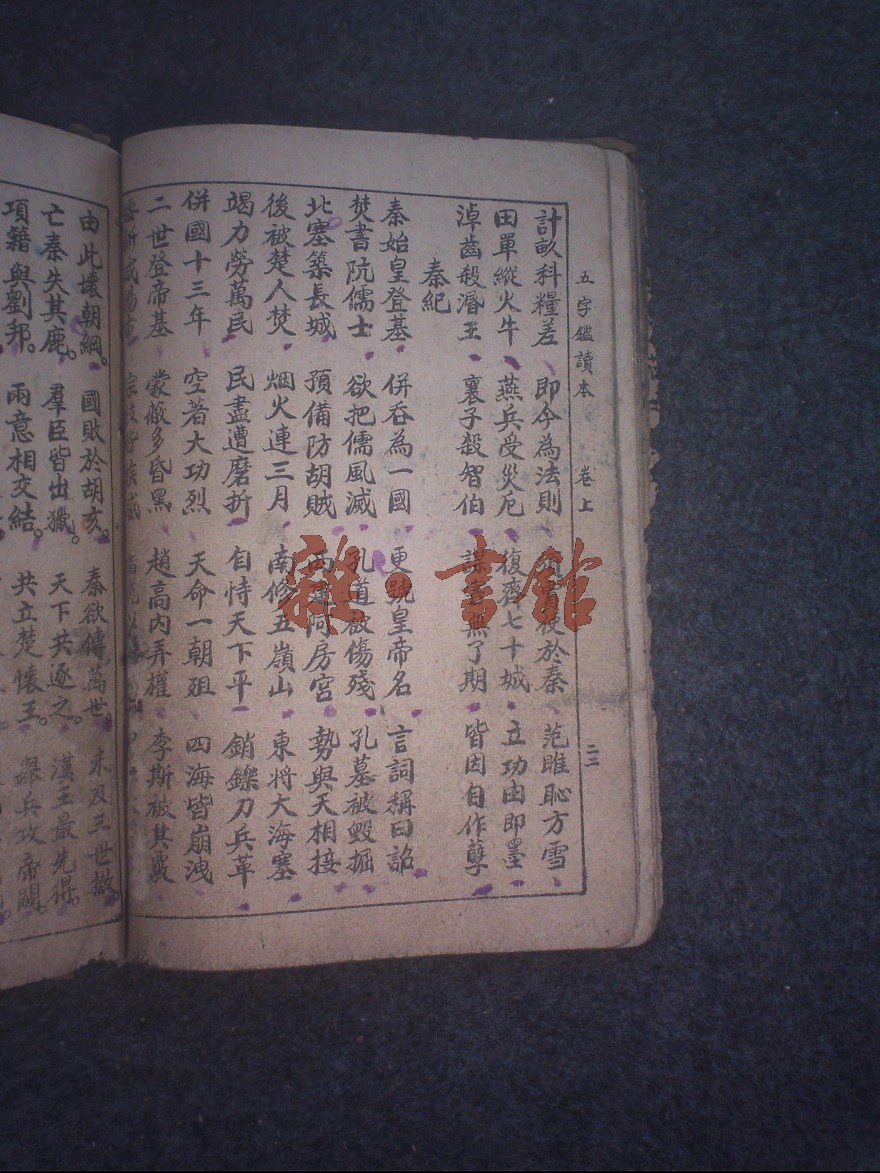 五字鑑讀本 卷上 二二
計畝科糧差 即今為法則 使於秦 范雎恥方雪
田單縱火牛 燕兵受災厄 復齊七十城 立功由即墨
淖齒殺湣王 襄子殺智伯 謀 無了期 皆因自作孽
秦紀
秦始皇登基 併吞為一國 更號皇帝名 言詞稱曰詔
焚書阬儒士 欲把儒風滅 孔道欲傷殘 孔墓被毀掘
北塞築長城 預備防胡賊 西建阿房宮 勢與天相接
後被楚人焚 烟火連三月 南修五嶺山 東將大海塞
竭力勞萬民 民盡遭磨折 自恃天下平 銷鑠刀兵革
併國十三年 空著大功烈 天命一朝殂 四海皆崩洩
二世登帝基 蒙蔽多昏黑 趙高內弄權 李斯被其竊
由此壞朝綱。 國敗於胡亥。 秦欲傳萬世。 未及三世撤
亡秦失其鹿。 羣臣皆出獵。 天下共逐之。 漢王最先得。
項籍與劉邦。 兩意相交結。 共立楚懷王。 舉兵攻帝闕。
雜·書館